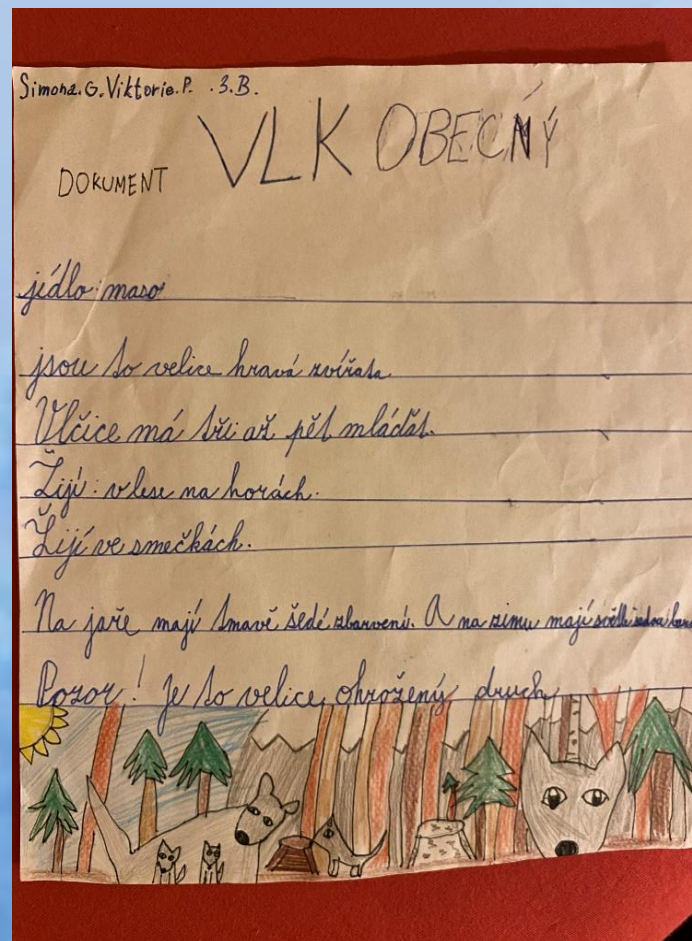 Simona.G.Viktorie.P. .3.B.
VLK OBECNÝ
DOKUMENT
jídlo: maso
jsou to velice hravá zvířata.
Vlčice má tři až pět mláďat.
Žijí: v lese na horách.
Žijí ve smečkách.
Na jaře mají tmavě šedé zbarvení. A na zimu mají světle
Pozor! Je to velice ohrožený druch